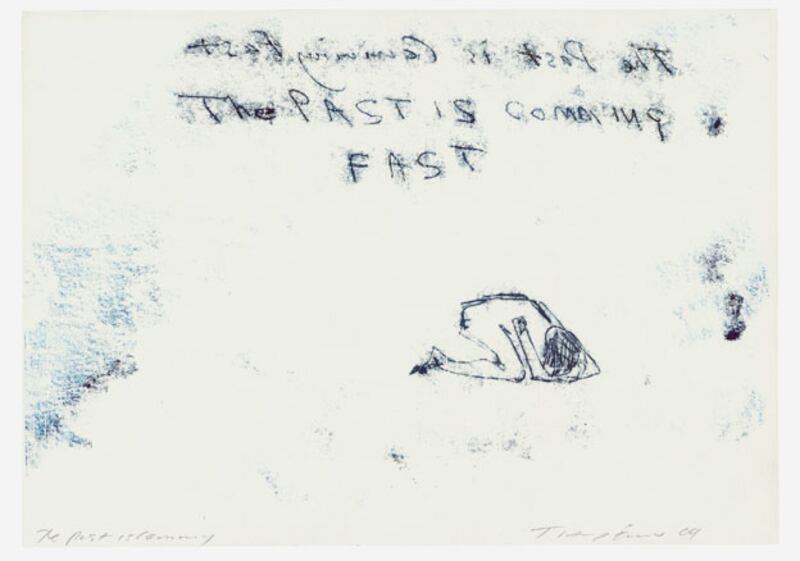 The Past is Comming Fast
The PAST IS COMMING
FAST
The past is Comming